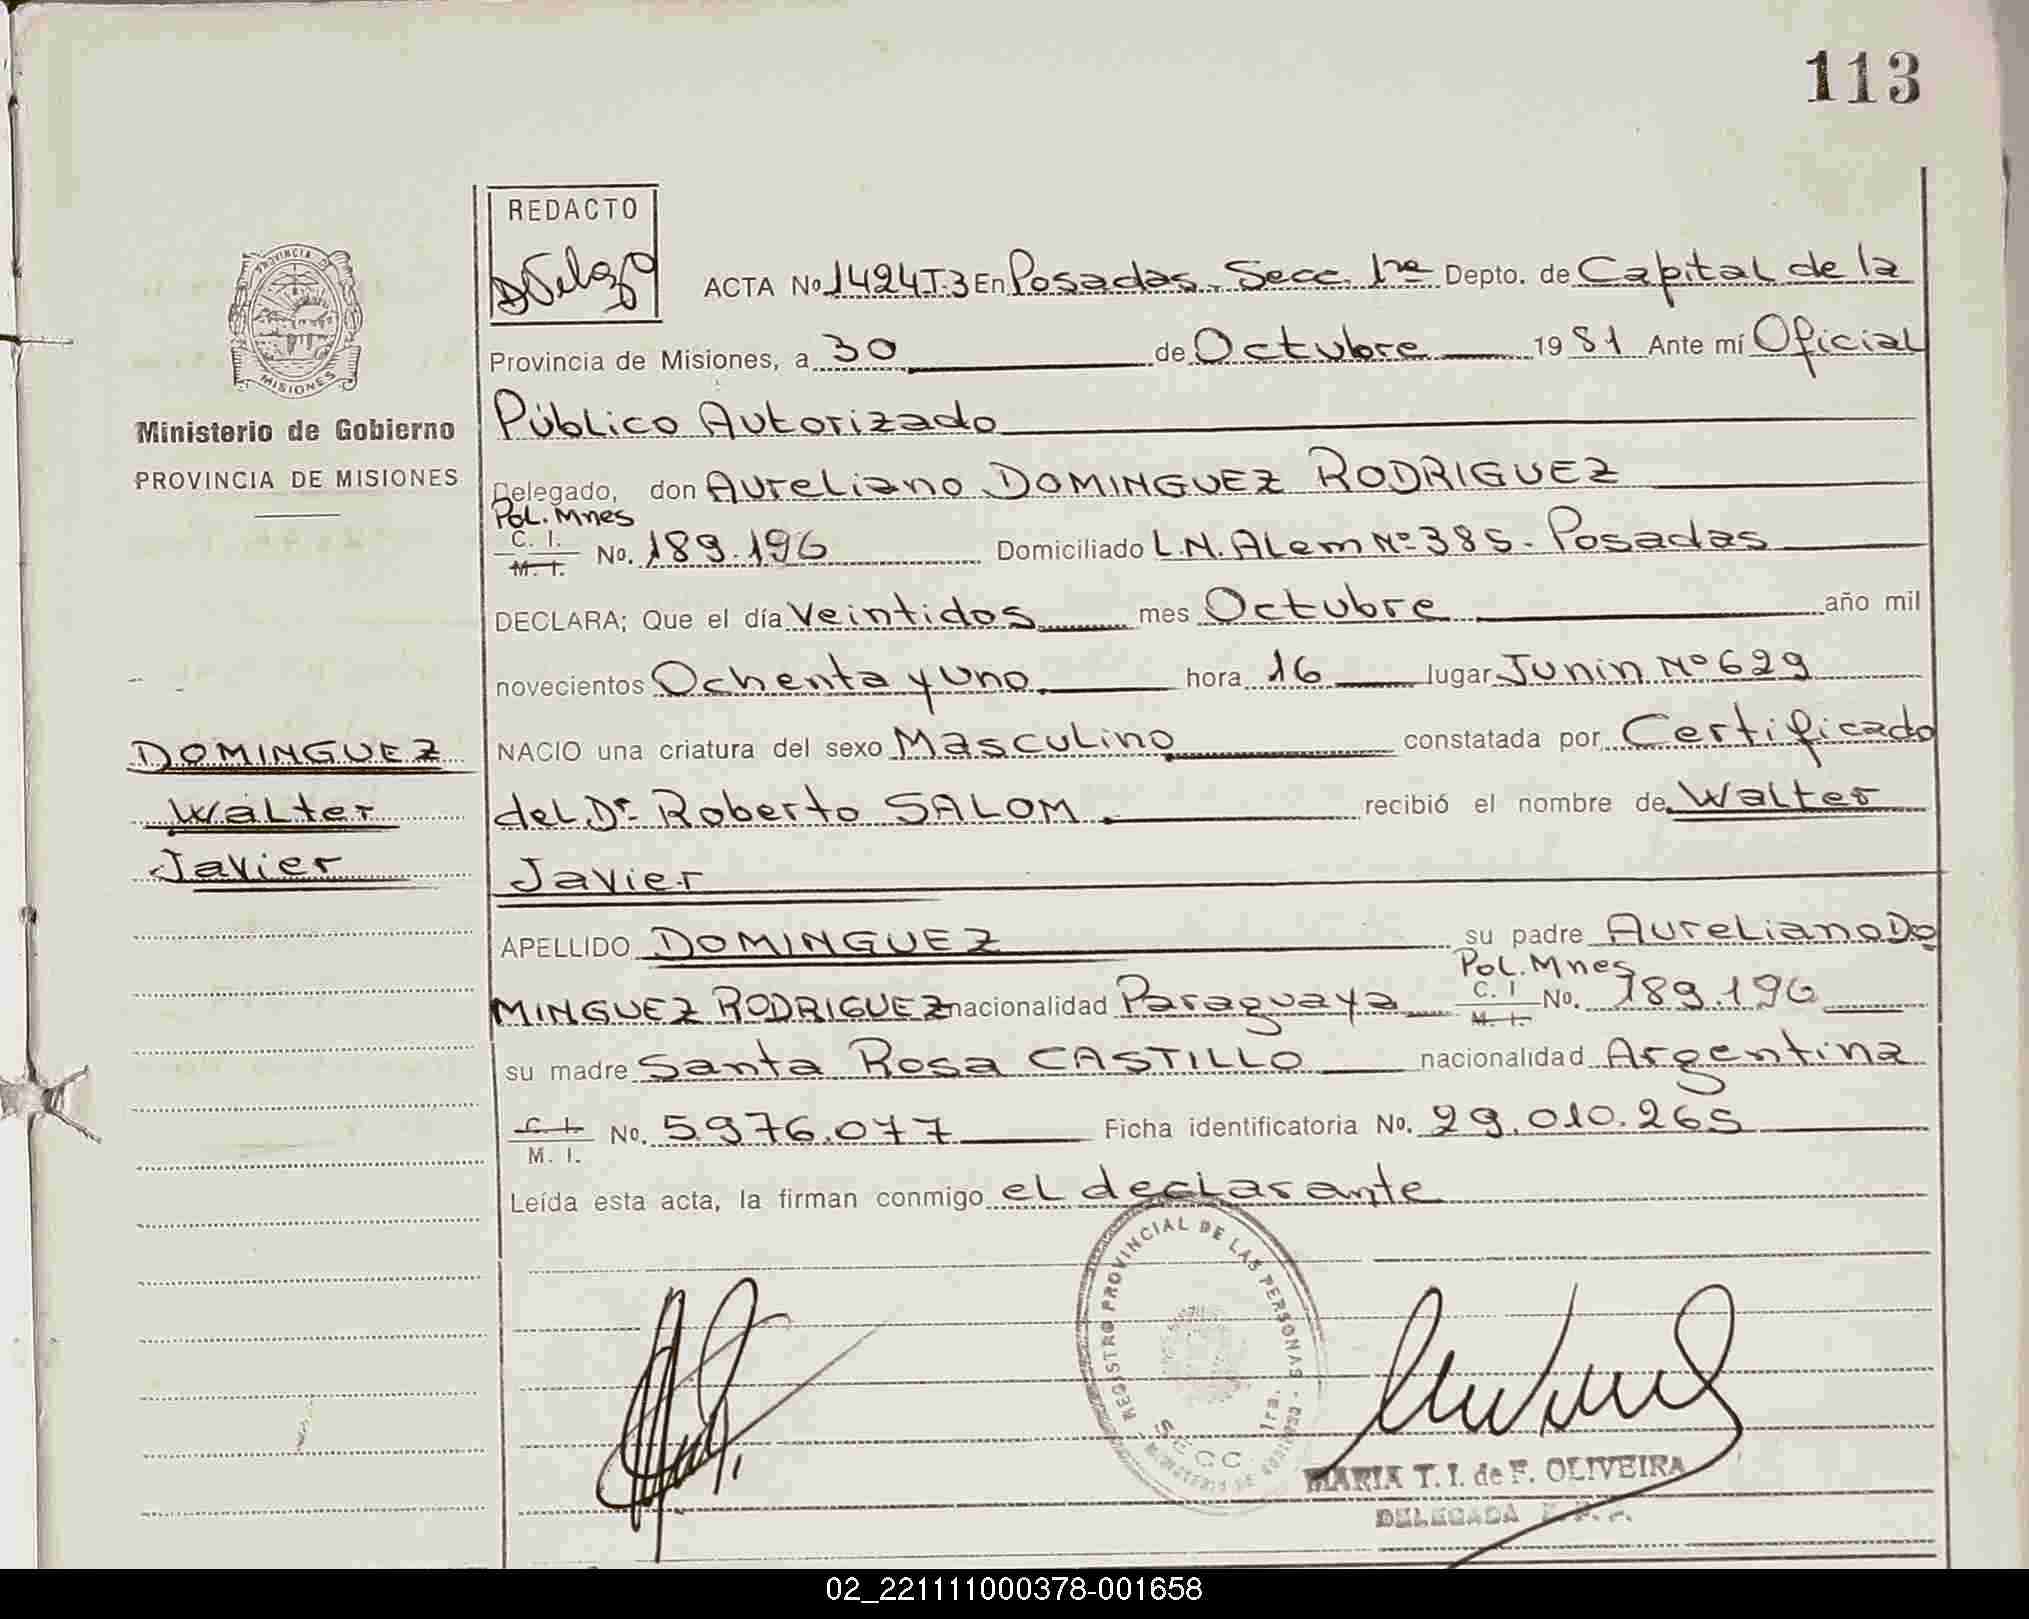 113
REDACTO
PROVINCIA D
MISIONES
Ministerio de Gobierno
PROVINCIA DE MISIONES
ACTA No 1424T.3 En Posadas. Secc. 1ra Depto. de Capital de la
Provincia de Misiones, a 30 de Octubre 1981 Ante mí Oficial
Público Autorizado
Delegado, don Aureliano DOMINGUEZ RODRIGUEZ
Pol. Mnes
C. I.
M. I. No. 189.196 Domiciliado L.N. Alem Nº 385. Posadas
DECLARA; Que el día Veintidos mes Octubre año mil
novecientos Ochenta y Uno. hora 16 lugar Junin Nº 629
NACIO una criatura del sexo Masculino constatada por Certificado
del Dr. Roberto SALOM. recibió el nombre de Walter
Javier
DOMINGUEZ
Walter
Javier
APELLIDO DOMINGUEZ su padre Aureliano DO
MINGUEZ RODRIGUEZ nacionalidad Paraguaya Pol. Mnes C. I. M. I. No. 189.196
su madre Santa Rosa CASTILLO nacionalidad Argentina
C. I.
M. I. No. 5.976.077 Ficha identificatoria No. 29.010.265
Leída esta acta, la firman conmigo el declarante
REGISTRO PROVINCIAL DE LAS PERSONAS
SECC. 1ra.
MINISTERIO DE GOBIERNO
MARIA T. I. de F. OLIVEIRA
DELEGADA
02_221111000378-001658